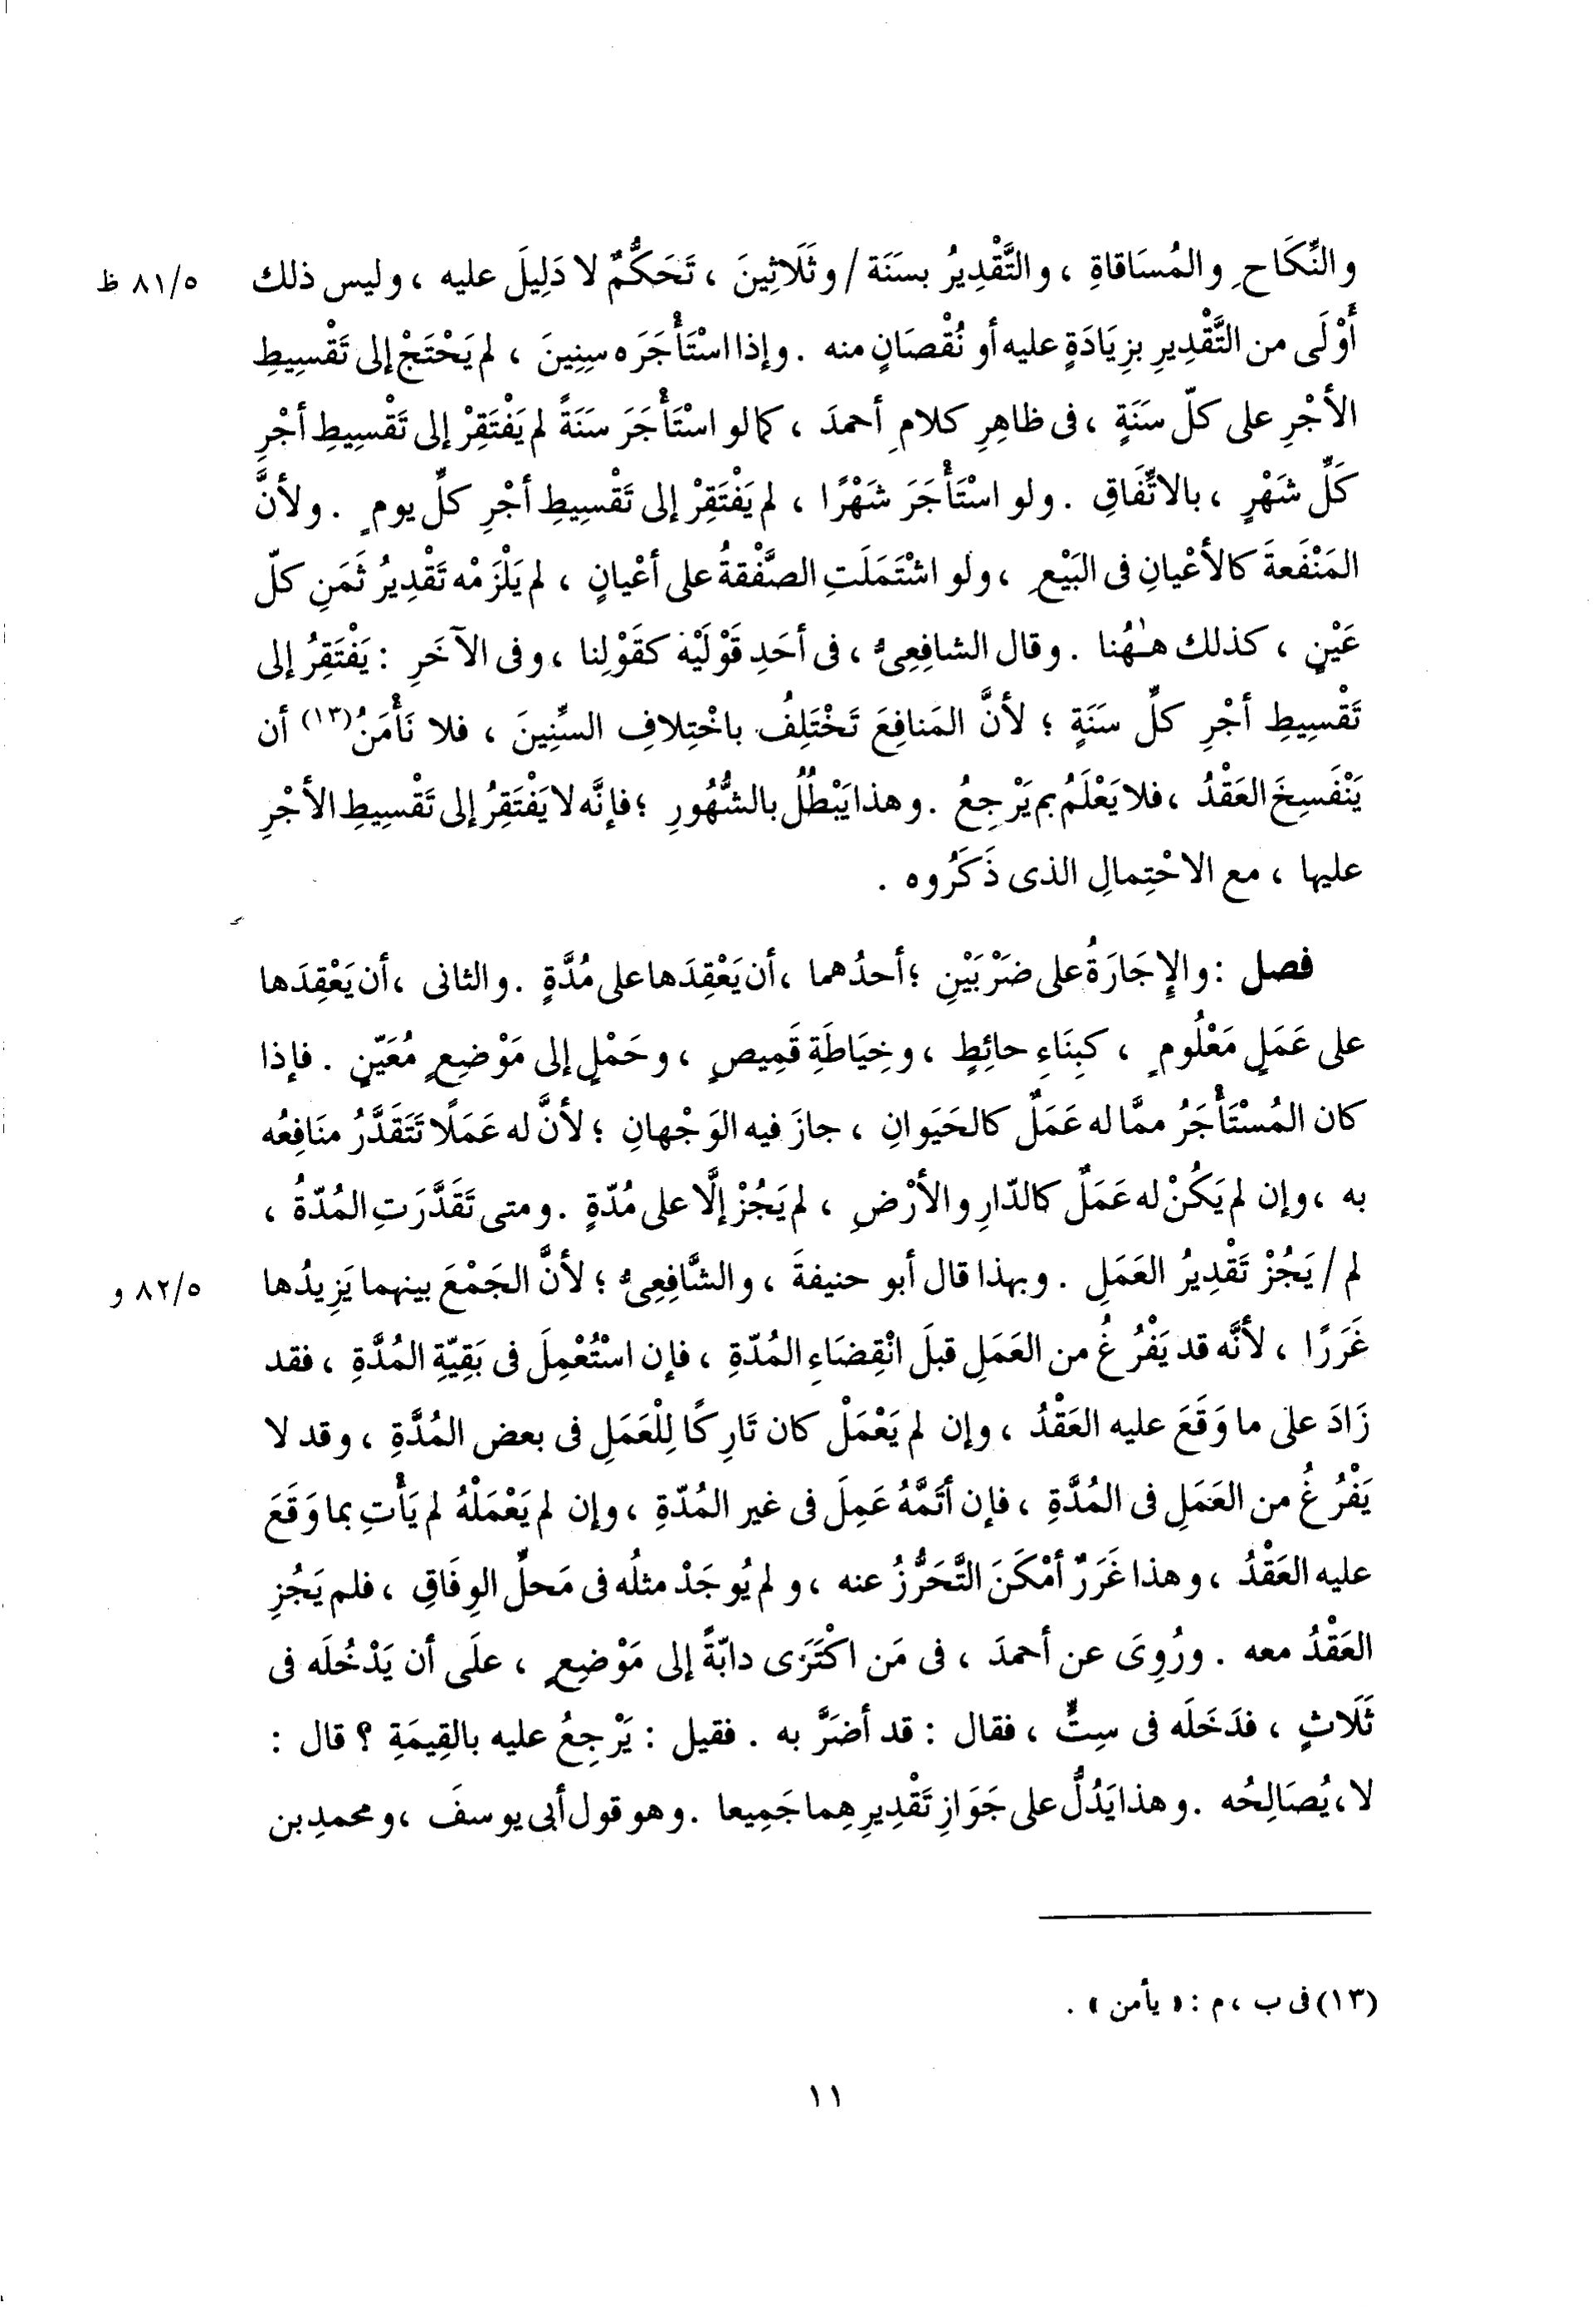 والنِّكَاحِ والمُسَاقاةِ ، والتَّقْدِيرُ بسَنَة / وثَلَاثِينَ ، تَحَكُّمٌ لا دَلِيلَ عليه ، وليس ذلك ٨١/٥ ظ
أَوْلَى من التَّقْدِيرِ بزِيَادَةٍ عليه أو نُقْصَانٍ منه . وإذا اسْتَأْجَرَه سِنِينَ ، لم يَحْتَجْ إلى تَقْسِيطِ
الأجْرِ على كلّ سَنَةٍ ، فى ظاهِرِ كلامِ أحمدَ ، كما لو اسْتَأْجَرَ سَنَةً لم يَفْتَقِرْ إلى تَقْسِيطِ أجْرِ
كَلِّ شَهْرٍ ، بالاتِّفَاقِ . ولو اسْتَأْجَرَ شَهْرًا ، لم يَفْتَقِرْ إلى تَقْسِيطِ أجْرِ كلِّ يومٍ . ولأنَّ
المَنْفَعةَ كالأعْيانِ فى البَيْعِ ، ولو اشْتَمَلَتِ الصَّفْقةُ على أعْيانٍ ، لم يَلْزَمْه تَقْدِيرُ ثَمَنِ كلّ
عَيْنٍ ، كذلك هـٰهُنا . وقال الشافِعِىُّ ، فى أحَدِ قَوْلَيْه كقَوْلِنا ، وفى الآخَرِ : يَفْتَقِرُ إلى
تَقْسِيطِ أجْرِ كلِّ سَنَةٍ ؛ لأنَّ المَنافِعَ تَخْتَلِفُ باخْتِلافِ السِّنِينَ ، فلا نَأْمَنُ(١٣) أن
يَنْفَسِخَ العَقْدُ ، فلا يَعْلَمُ بم يَرْجِعُ . وهذا يَبْطُلُ بالشُّهُورِ ؛ فإنَّه لا يَفْتَقِرُ إلى تَقْسِيطِ الأجْرِ
عليها ، مع الاحْتِمالِ الذى ذَكَرُوه .
فصل : والإِجَارَةُ على ضَرْبَيْنِ ؛ أحدُهما ، أن يَعْقِدَها على مُدَّةٍ . والثانى ، أن يَعْقِدَها
على عَمَلٍ مَعْلُومٍ ، كبِنَاءِ حائِطٍ ، وخِيَاطَةِ قَمِيصٍ ، وحَمْلٍ إلى مَوْضِعٍ مُعَيّنٍ . فإذا
كان المُسْتَأْجَرُ ممَّا له عَمَلٌ كالحَيَوانِ ، جازَ فيه الوَجْهانِ ؛ لأنَّ له عَمَلًا تَتَقَدَّرُ منَافِعُه
به ، وإن لم يَكُنْ له عَمَلٌ كالدّارِ والأرْضِ ، لم يَجُزْ إلَّا على مُدّةٍ . ومتى تَقَدَّرَتِ المُدّةُ ،
لم / يَجُزْ تَقْدِيرُ العَمَلِ . وبهذا قال أبو حنيفةَ ، والشَّافِعِىُّ ؛ لأنَّ الجَمْعَ بينهما يَزِيدُها ٨٢/٥ و
غَرَرًا ، لأنَّه قد يَفْرُغُ من العَمَلِ قبلَ انْقِضَاءِ المُدّةِ ، فإن اسْتُعْمِلَ فى بَقِيّةِ المُدَّةِ ، فقد
زَادَ على ما وَقَعَ عليه العَقْدُ ، وإن لم يَعْمَلْ كان تَارِكًا لِلْعَمَلِ فى بعض المُدَّةِ ، وقد لا
يَفْرُغُ من العَمَلِ فى المُدَّةِ ، فإن أتَمَّهُ عَمِلَ فى غير المُدّةِ ، وإن لم يَعْمَلْهُ لم يَأْتِ بما وَقَعَ
عليه العَقْدُ ، وهذا غَرَرٌ أمْكَنَ التَّحَرُّزُ عنه ، ولم يُوجَدْ مثلُه فى مَحلِّ الوِفَاقِ ، فلم يَجُزِ
العَقْدُ معه . ورُوِىَ عن أحمدَ ، فى مَن اكْتَرَى دابّةً إلى مَوْضِعٍ ، علَى أن يَدْخُلَه فى
ثَلَاثٍ ، فدَخَلَه فى سِتٍّ ، فقال : قد أضَرَّ به . فقيل : يَرْجِعُ عليه بالقِيمَةِ ؟ قال :
لا ، يُصَالِحُه . وهذا يَدُلُّ على جَوَازِ تَقْدِيرِهِما جَمِيعا . وهو قول أبى يوسفَ ، ومحمدِ بن
(١٣) فى ب ، م : « يأمن » .
١١